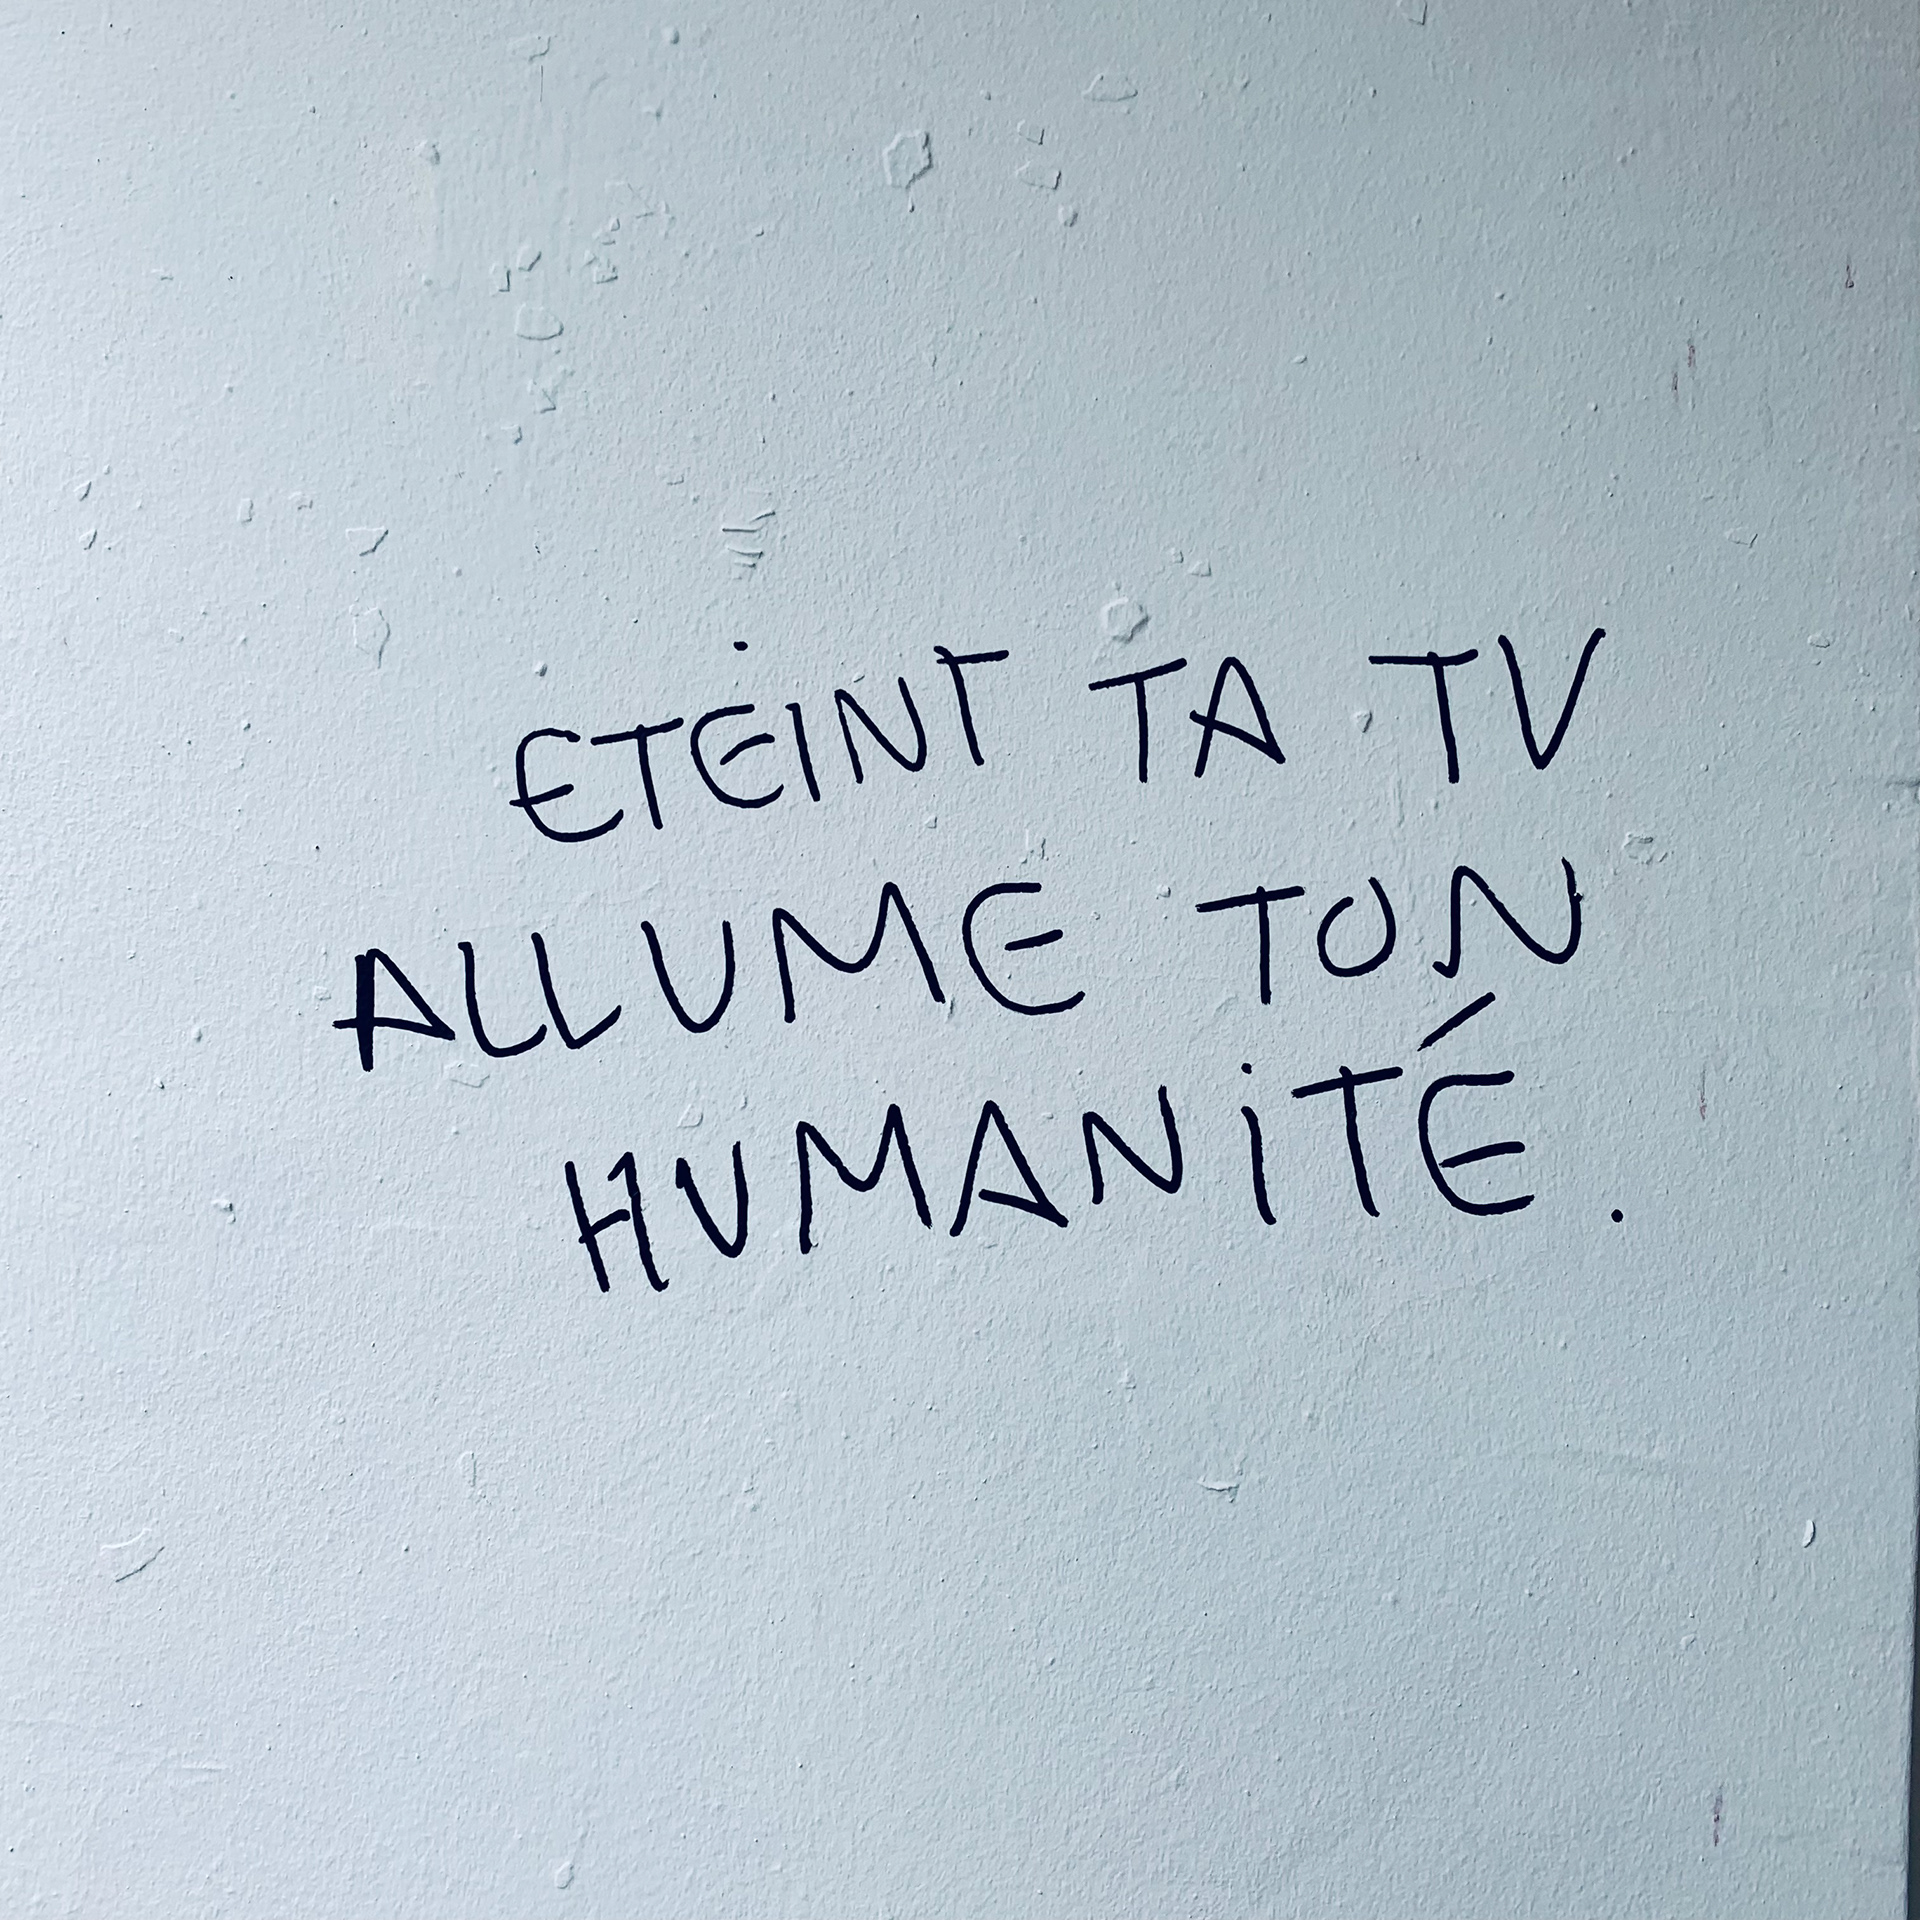 ETEINT TA TV
ALLUME TON
HUMANiTÉ.